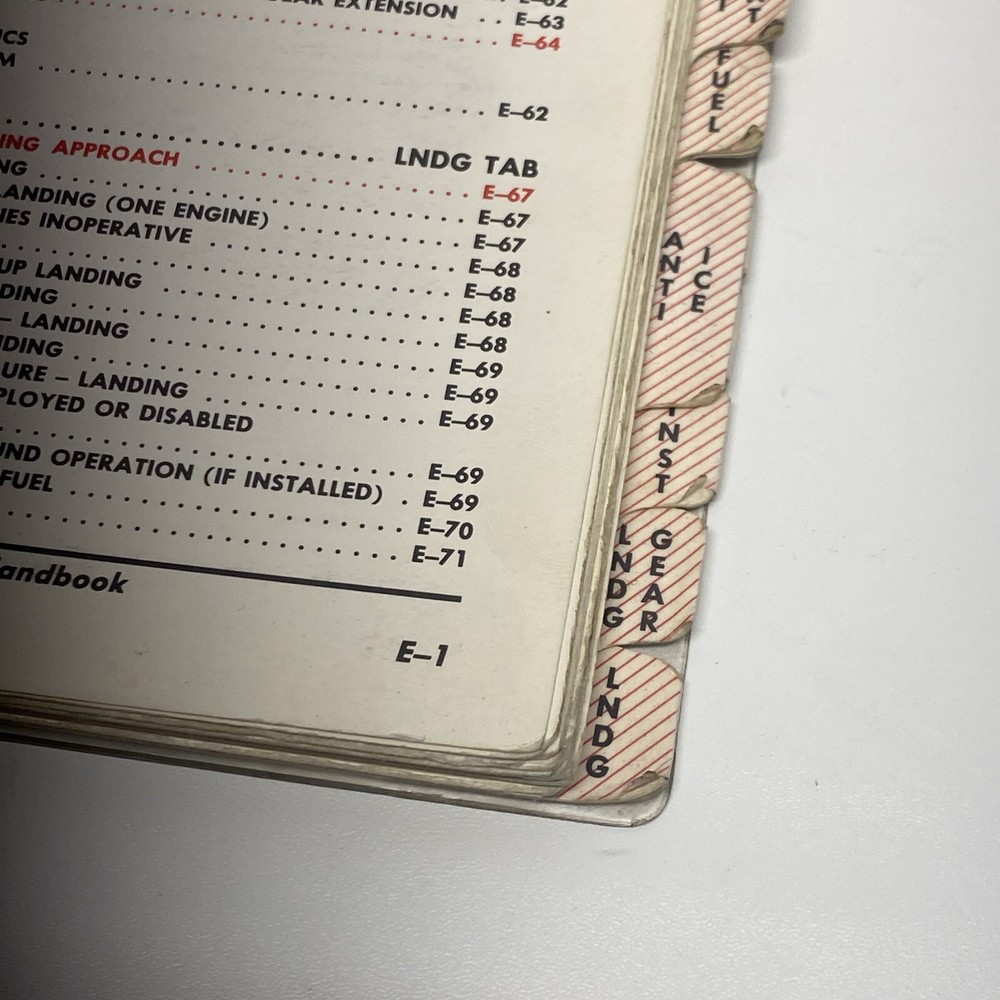 E–62
EXTENSION . . E–63
. . . . . . . . . . . . . E–64
ICS
M . . . . . . . . . . . . . . . . . . . . . . . . . . . . E–62
. . . . . . . . . . . . . . . . . . . . . LNDG TAB
ING APPROACH . . . . . . . . . . . . . . . . . . . E–67
NG . . . . . . . . . . . . . . . . . . . . . . . . . . . E–67
LANDING (ONE ENGINE) . . . . . . . . . . . . E–67
IES INOPERATIVE . . . . . . . . . . . . . . . . . E–68
. . . . . . . . . . . . . . . . . . . . . . . . . . . . . E–68
UP LANDING . . . . . . . . . . . . . . . . . . . . E–68
DING . . . . . . . . . . . . . . . . . . . . . . . . . E–68
– LANDING . . . . . . . . . . . . . . . . . . . . . E–69
DING . . . . . . . . . . . . . . . . . . . . . . . . . E–69
URE – LANDING . . . . . . . . . . . . . . . . . . E–69
PLOYED OR DISABLED
. . . . . . . . . . . . . . . . . . . . . . . . . . . . . E–69
UND OPERATION (IF INSTALLED) . E–69
FUEL . . . . . . . . . . . . . . . . . . . . . . . . . E–70
. . . . . . . . . . . . . . . . . . . . . . . . . . . . . E–71
andbook
E–1
FUEL
ANTI ICE
INST
LNDG GEAR
LNDG